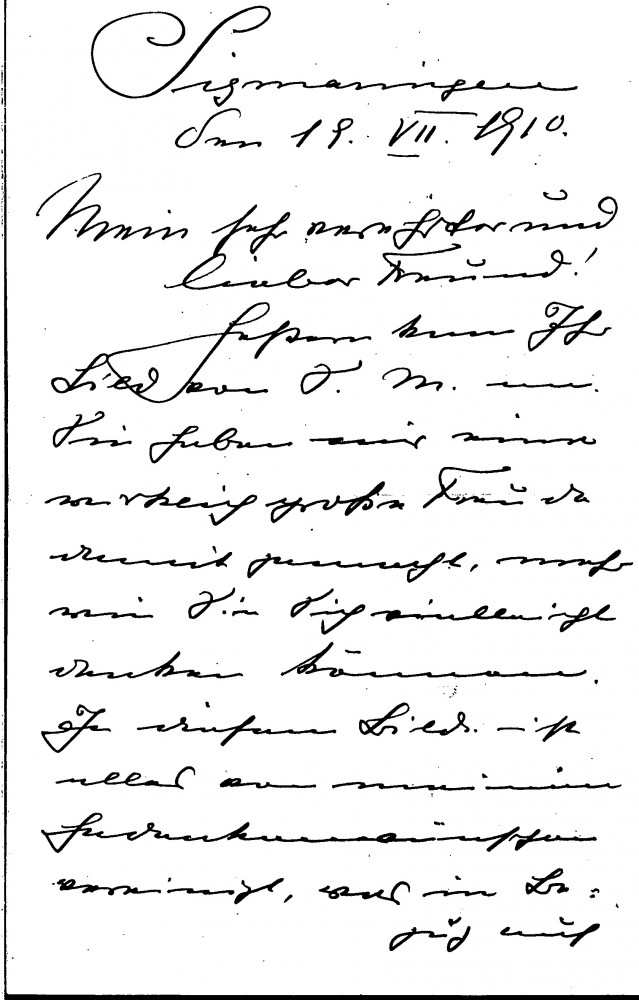 Sigmaringen
den 19. VII. 1910.
Mein sehr verehrter und
lieber Freund!
Gestern kam Ihr
Bild von S. M. an.
Sie haben mir eine
wirklich große Freude
damit gemacht, mehr
wie Sie Sich vielleicht
denken können.
In diesem Bild ist
alles von meinen
vereinigt, was in Be=
zug auf